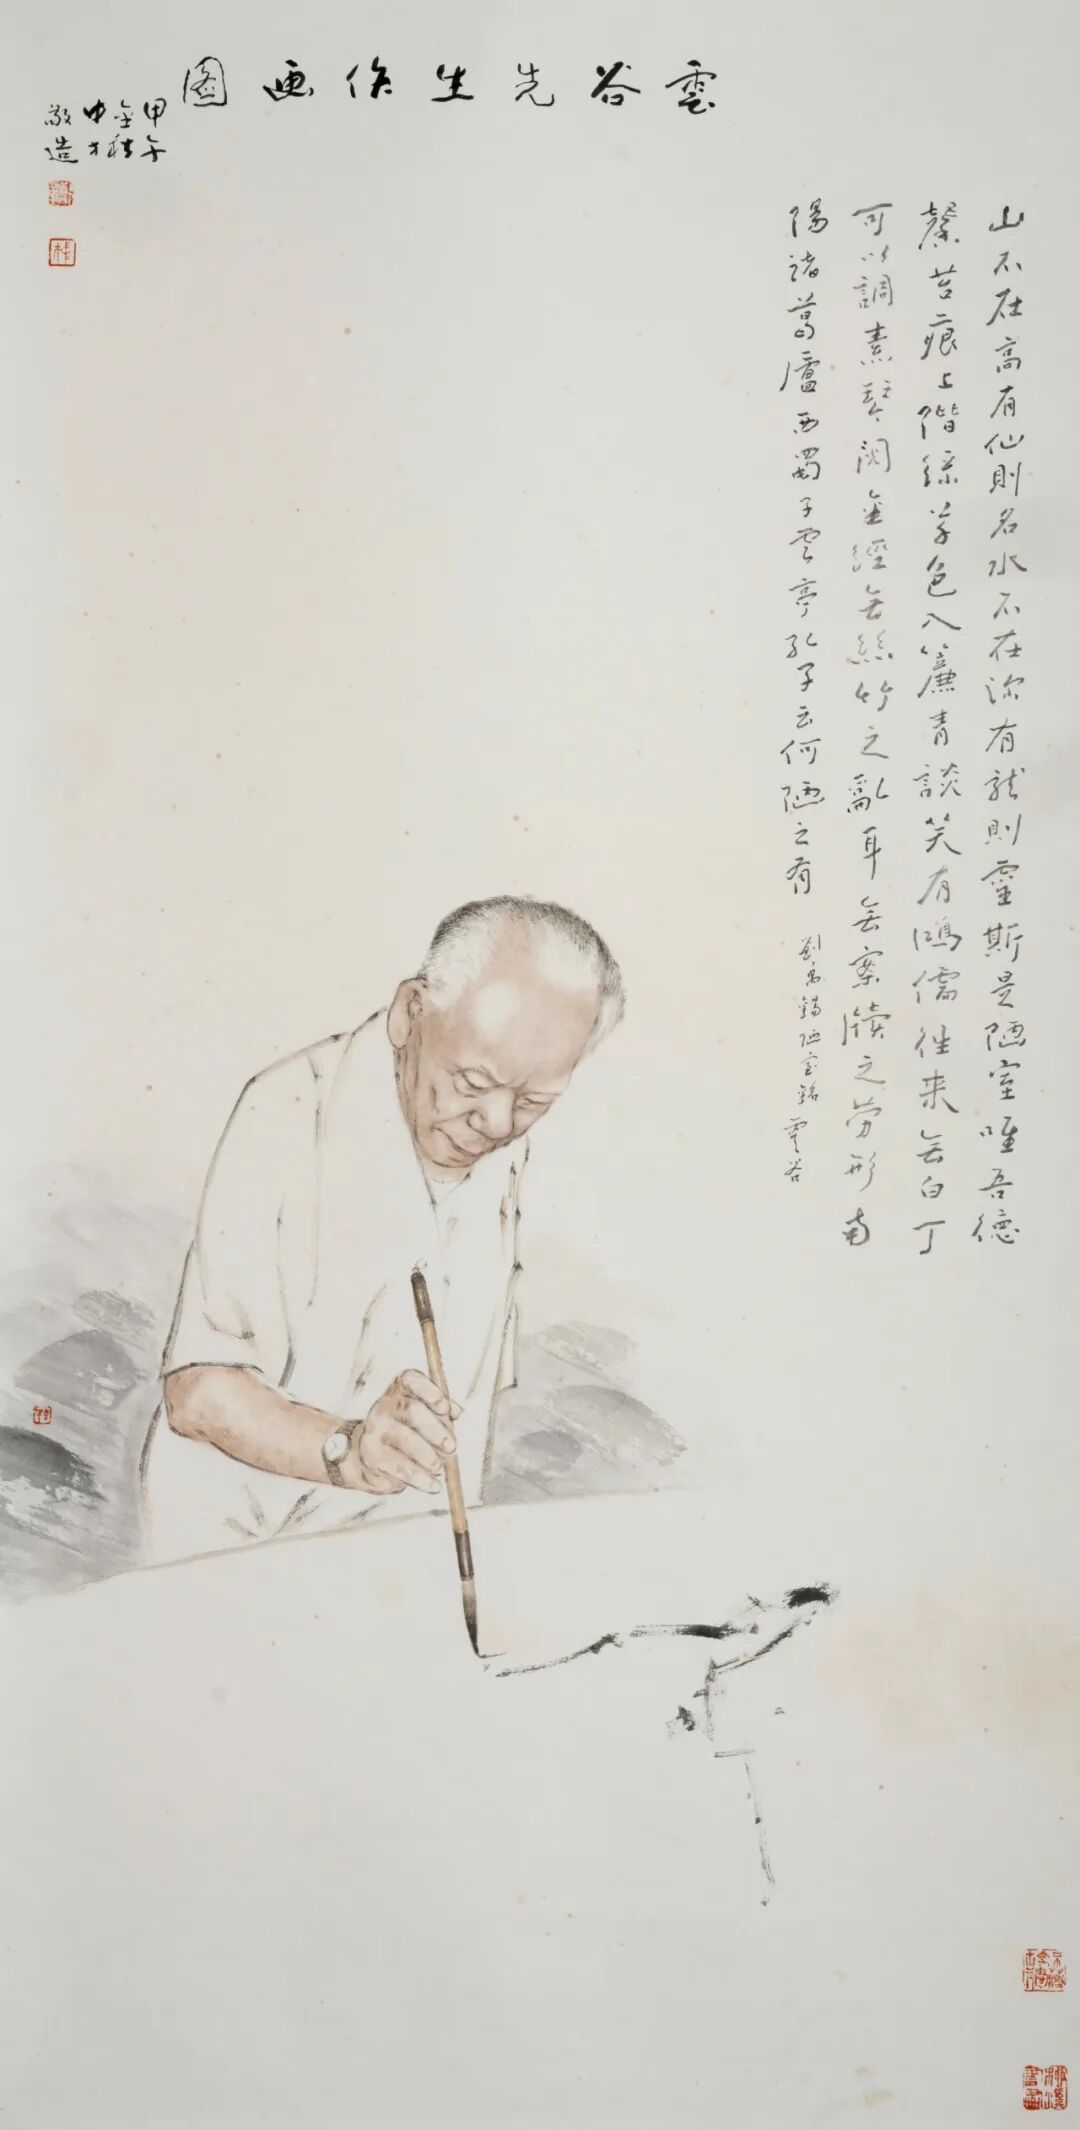 雲谷先生作画图
甲午
金秋
中才
敬造
山不在高有仙則名水不在深有龍則靈斯是陋室唯吾德
馨苔痕上階綠草色入簾青談笑有鴻儒往來無白丁
可以調素琴閱金經無絲竹之亂耳無案牘之勞形南
陽諸葛廬西蜀子雲亭孔子云何陋之有
劉禹錫陋室銘 雲谷